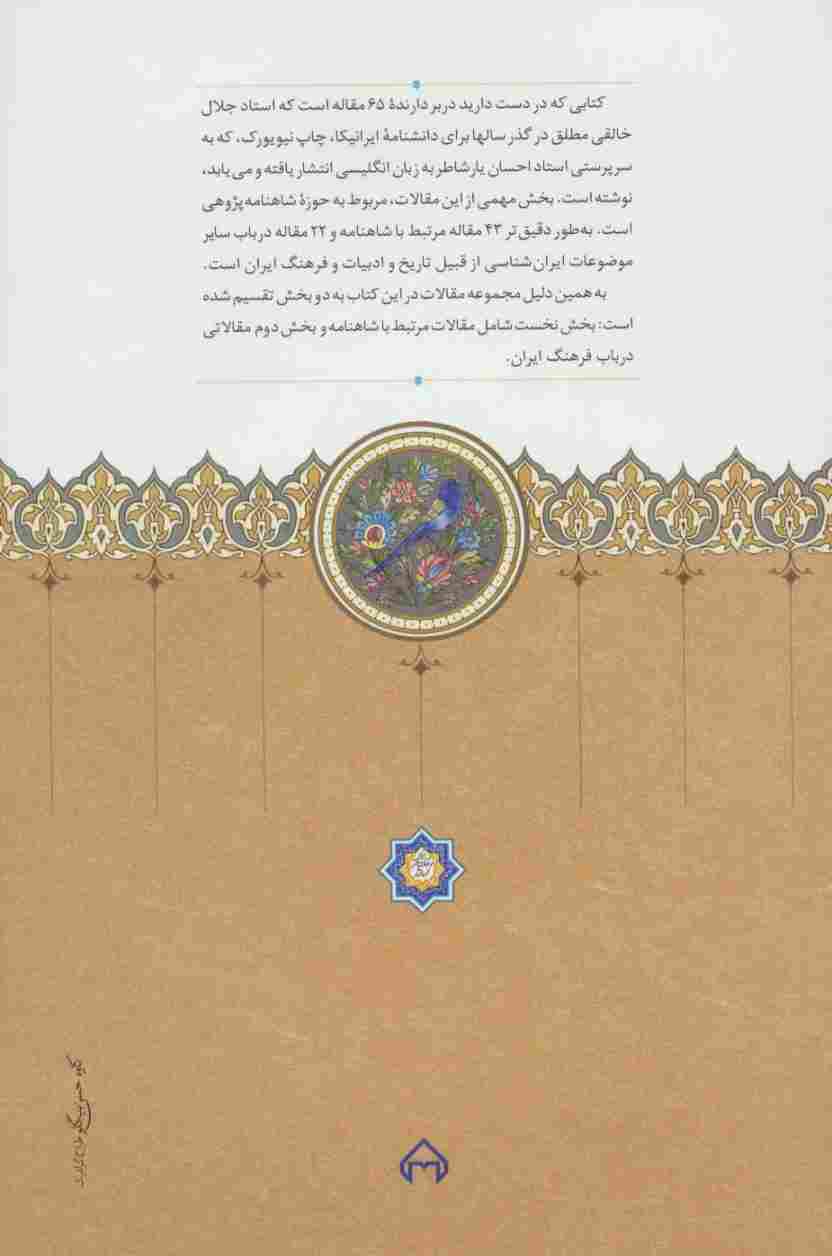 کتابی که در دست دارید دربردارندهٔ ۶۵ مقاله است که استاد جلال
خالقی مطلق در گذر سالها برای دانشنامهٔ ایرانیکا، چاپ نیویورک، که به
سرپرستی استاد احسان یارشاطر به زبان انگلیسی انتشار یافته و می‌یابد،
نوشته است. بخش مهمی از این مقالات، مربوط به حوزهٔ شاهنامه‌پژوهی
است. به‌طور دقیق‌تر ۴۳ مقاله مرتبط با شاهنامه و ۲۲ مقاله درباب سایر
موضوعات ایران‌شناسی از قبیل تاریخ و ادبیات و فرهنگ ایران است.
به همین دلیل مجموعه مقالات در این کتاب به دو بخش تقسیم شده
است: بخش نخست شامل مقالات مرتبط با شاهنامه و بخش دوم مقالاتی
درباب فرهنگ ایران.